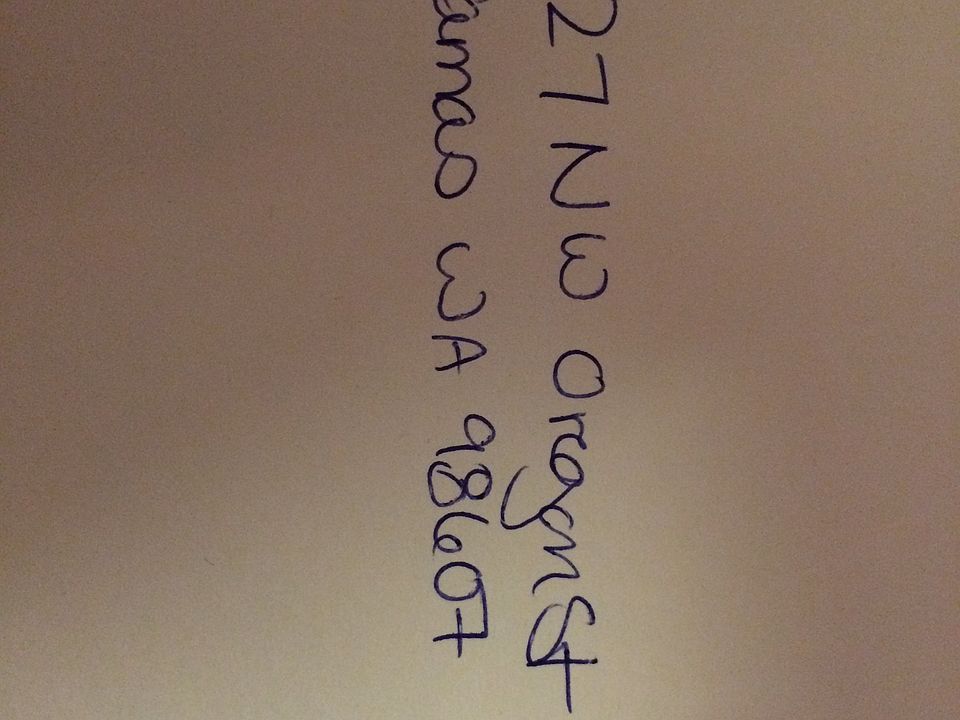 27 NW Oregon St
amas WA 98607